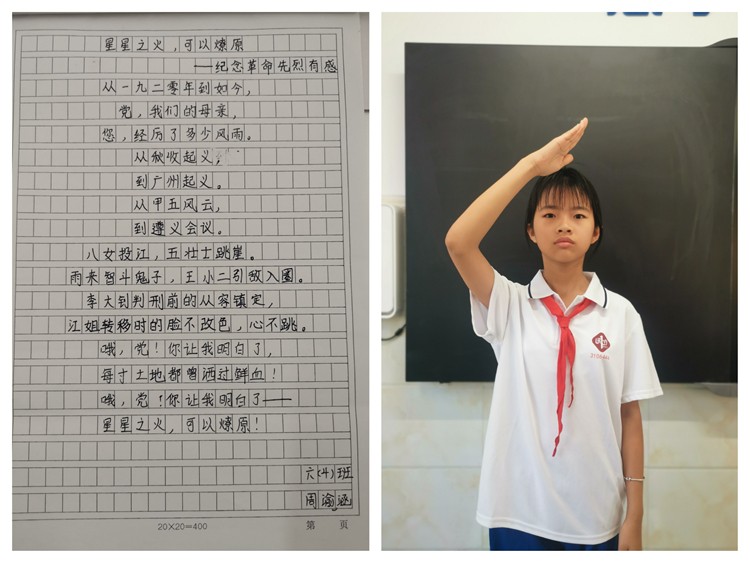 星星之火，可以燎原
——纪念革命先烈有感
从一九二零年到如今，
党，我们的母亲，
您，经历了多少风雨。
从秋收起义，
到广州起义。
从甲五风云，
到遵义会议。
八女投江，五壮士跳崖。
雨来智斗鬼子，王小二引敌入圈。
李大钊判刑前的从容镇定，
江姐转移时的脸不改色，心不跳。
哦，党！你让我明白了，
每寸土地都曾洒过鲜血！
哦，党！你让我明白了——
星星之火，可以燎原！
六(4)班
周渝涵
20×20=400
第 页